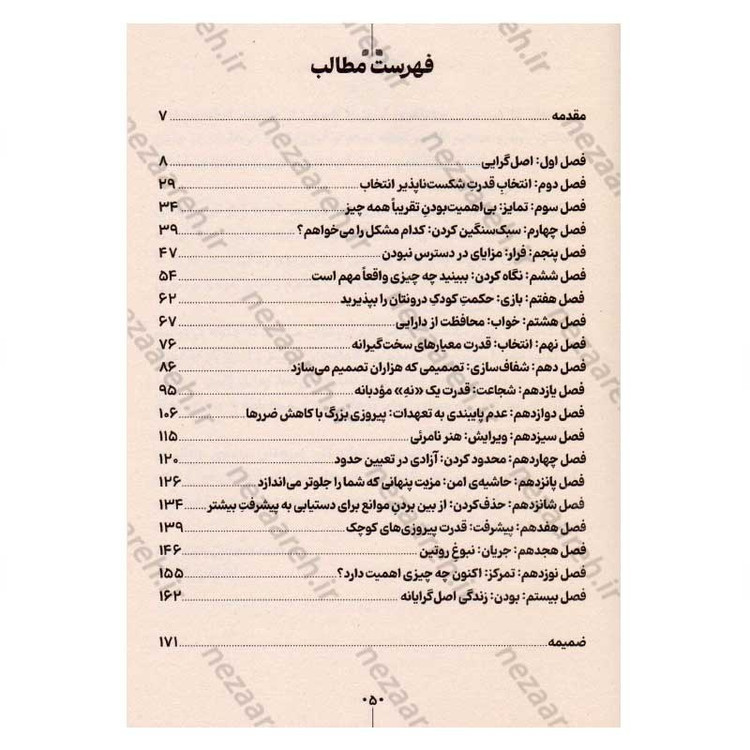 فهرست مطالب
مقدمه ۷
فصل اول: اصل‌گرایی ۸
فصل دوم: انتخابِ قدرتِ شکست‌ناپذیر انتخاب ۲۹
فصل سوم: تمایز: بی‌اهمیت‌بودنِ تقریباً همه چیز ۳۴
فصل چهارم: سبک‌سنگین کردن: کدام مشکل را می‌خواهم؟ ۳۹
فصل پنجم: فرار: مزایای در دسترس نبودن ۴۷
فصل ششم: نگاه کردن: ببینید چه چیزی واقعاً مهم است ۵۴
فصل هفتم: بازی: حکمتِ کودکِ درونتان را بپذیرید ۶۲
فصل هشتم: خواب: محافظت از دارایی ۶۷
فصل نهم: انتخاب: قدرت معیارهای سخت‌گیرانه ۷۶
فصل دهم: شفاف‌سازی: تصمیمی که هزاران تصمیم می‌سازد ۸۶
فصل یازدهم: شجاعت: قدرت یک «نه» مؤدبانه ۹۵
فصل دوازدهم: عدم پایبندی به تعهدات: پیروزی بزرگ با کاهش ضررها ۱۰۶
فصل سیزدهم: ویرایش: هنر نامرئی ۱۱۵
فصل چهاردهم: محدود کردن: آزادی در تعیین حدود ۱۲۰
فصل پانزدهم: حاشیه‌ی امن: مزیت پنهانی که شما را جلوتر می‌اندازد ۱۲۶
فصل شانزدهم: حذف‌کردن: از بین بردنِ موانع برای دستیابی به پیشرفتِ بیشتر ۱۳۴
فصل هفدهم: پیشرفت: قدرت پیروزی‌های کوچک ۱۳۹
فصل هجدهم: جریان: نبوغِ روتین ۱۴۶
فصل نوزدهم: تمرکز: اکنون چه چیزی اهمیت دارد؟ ۱۵۵
فصل بیستم: بودن: زندگی اصل‌گرایانه ۱۶۲
ضمیمه ۱۷۱
۰۵۰
nezaareh.ir